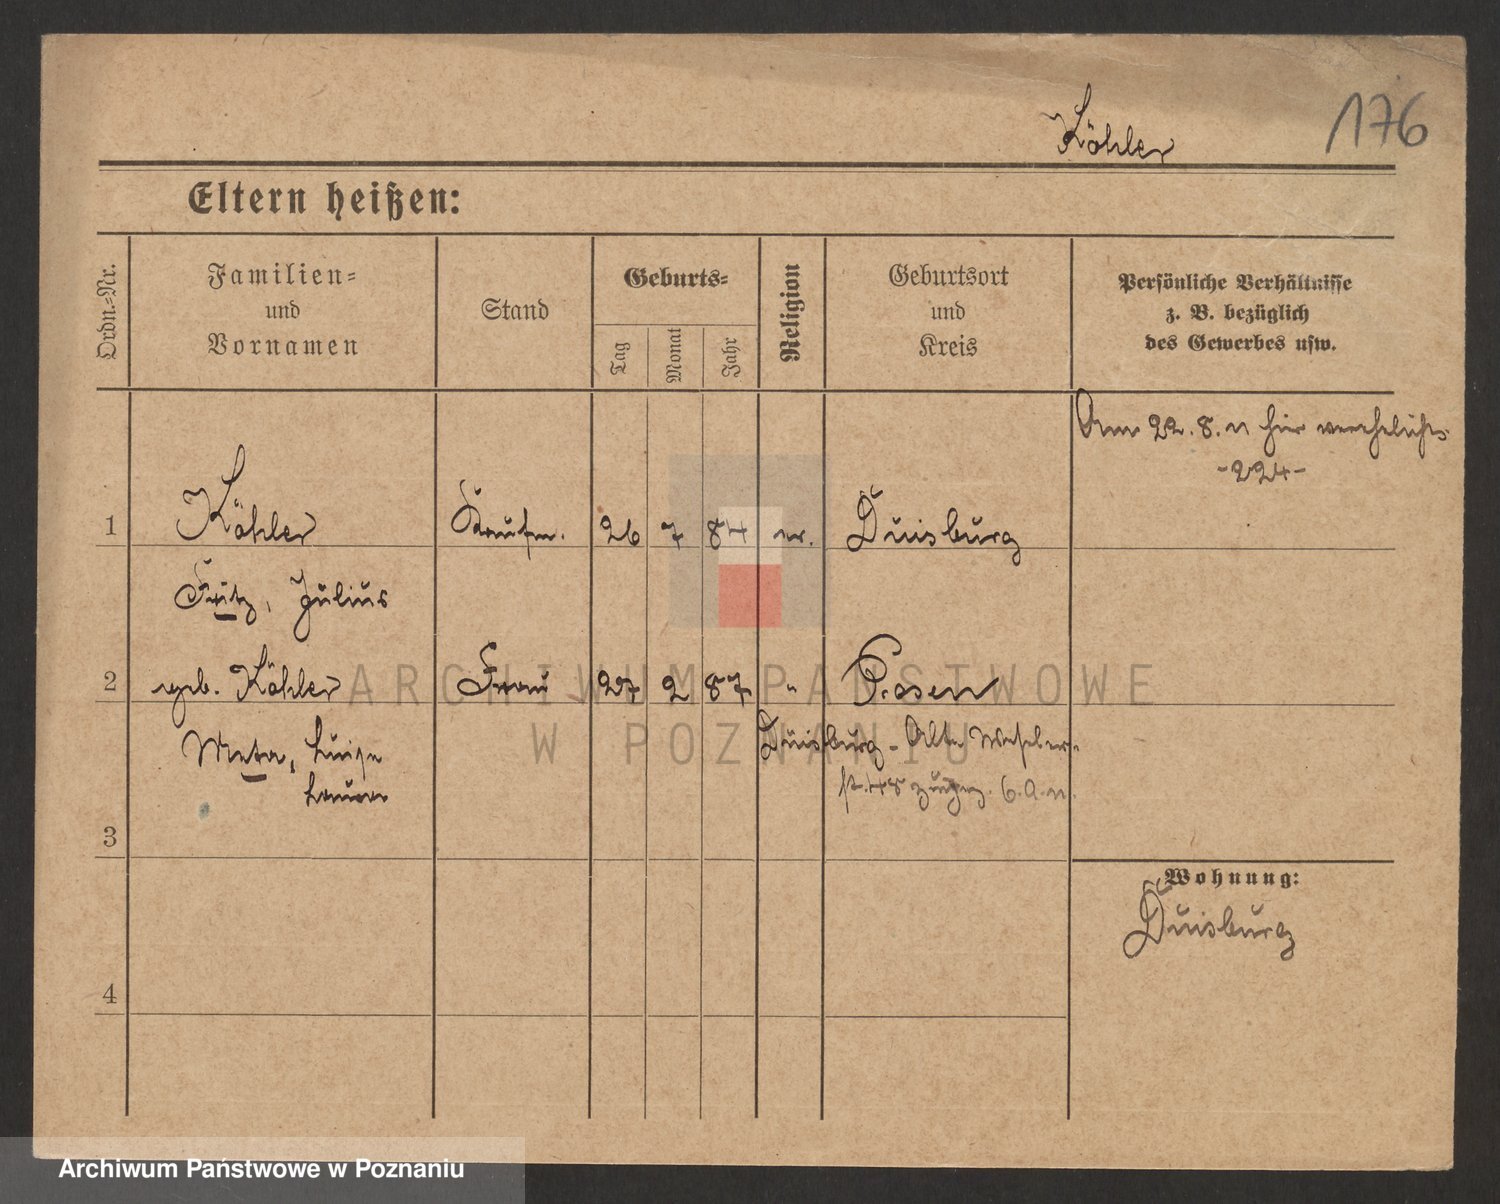 Köhler
176
Eltern heißen:
Ordn.-Nr.
Familien-
und
Vornamen
Stand
Geburts-
Tag
Monat
Jahr
Religion
Geburtsort
und
Kreis
Persönliche Verhältnisse
z. B. bezüglich
des Gewerbes usw.
Am 22. 8. 11 hier verehelicht
-224-
1 Köhler Kaufm. 26 7 84 ev. Duisburg
Fritz, Julius
2 geb. Köhler Frau 27 2 87 " Posen
Meta, Luise
Laura
Duisburg - Alte Weseler-
st. 48 6.9.11.
3
Wohnung:
Duisburg
4
ARCHIWUM PAŃSTWOWE
W POZNANIU
Archiwum Państwowe w Poznaniu